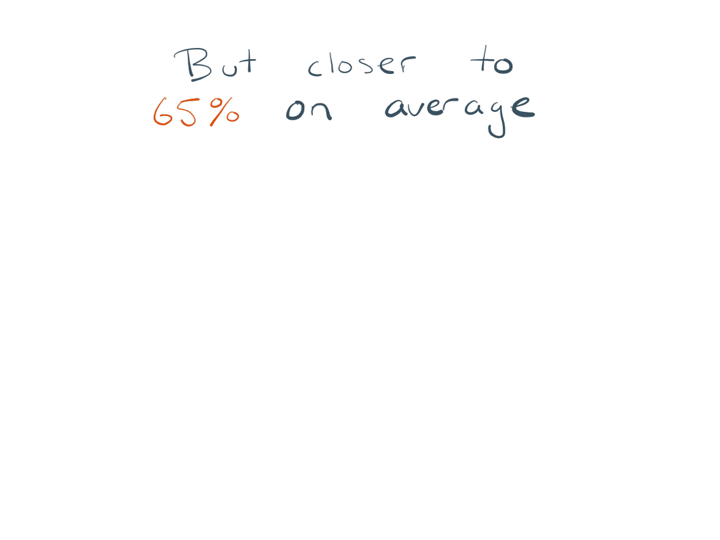 But closer to
65% on average